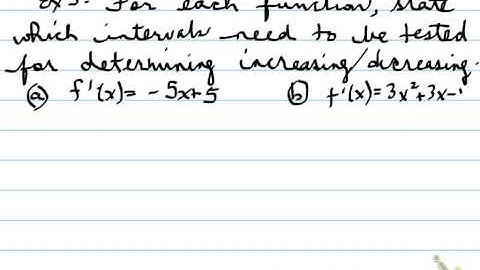 Ex 3: For each function, state
which intervals need to be tested
for determining increasing/decreasing.
(a) f'(x) = -5x+5 (b) f'(x) = 3x²+3x-